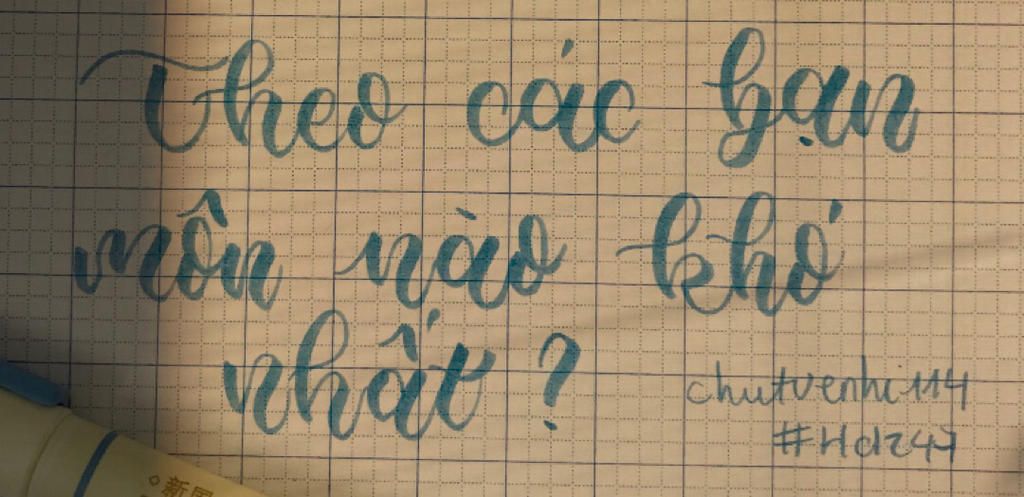 Theo các bạn
môn nào khó
nhất ?
chutvenhi114
#Hdz47
新風